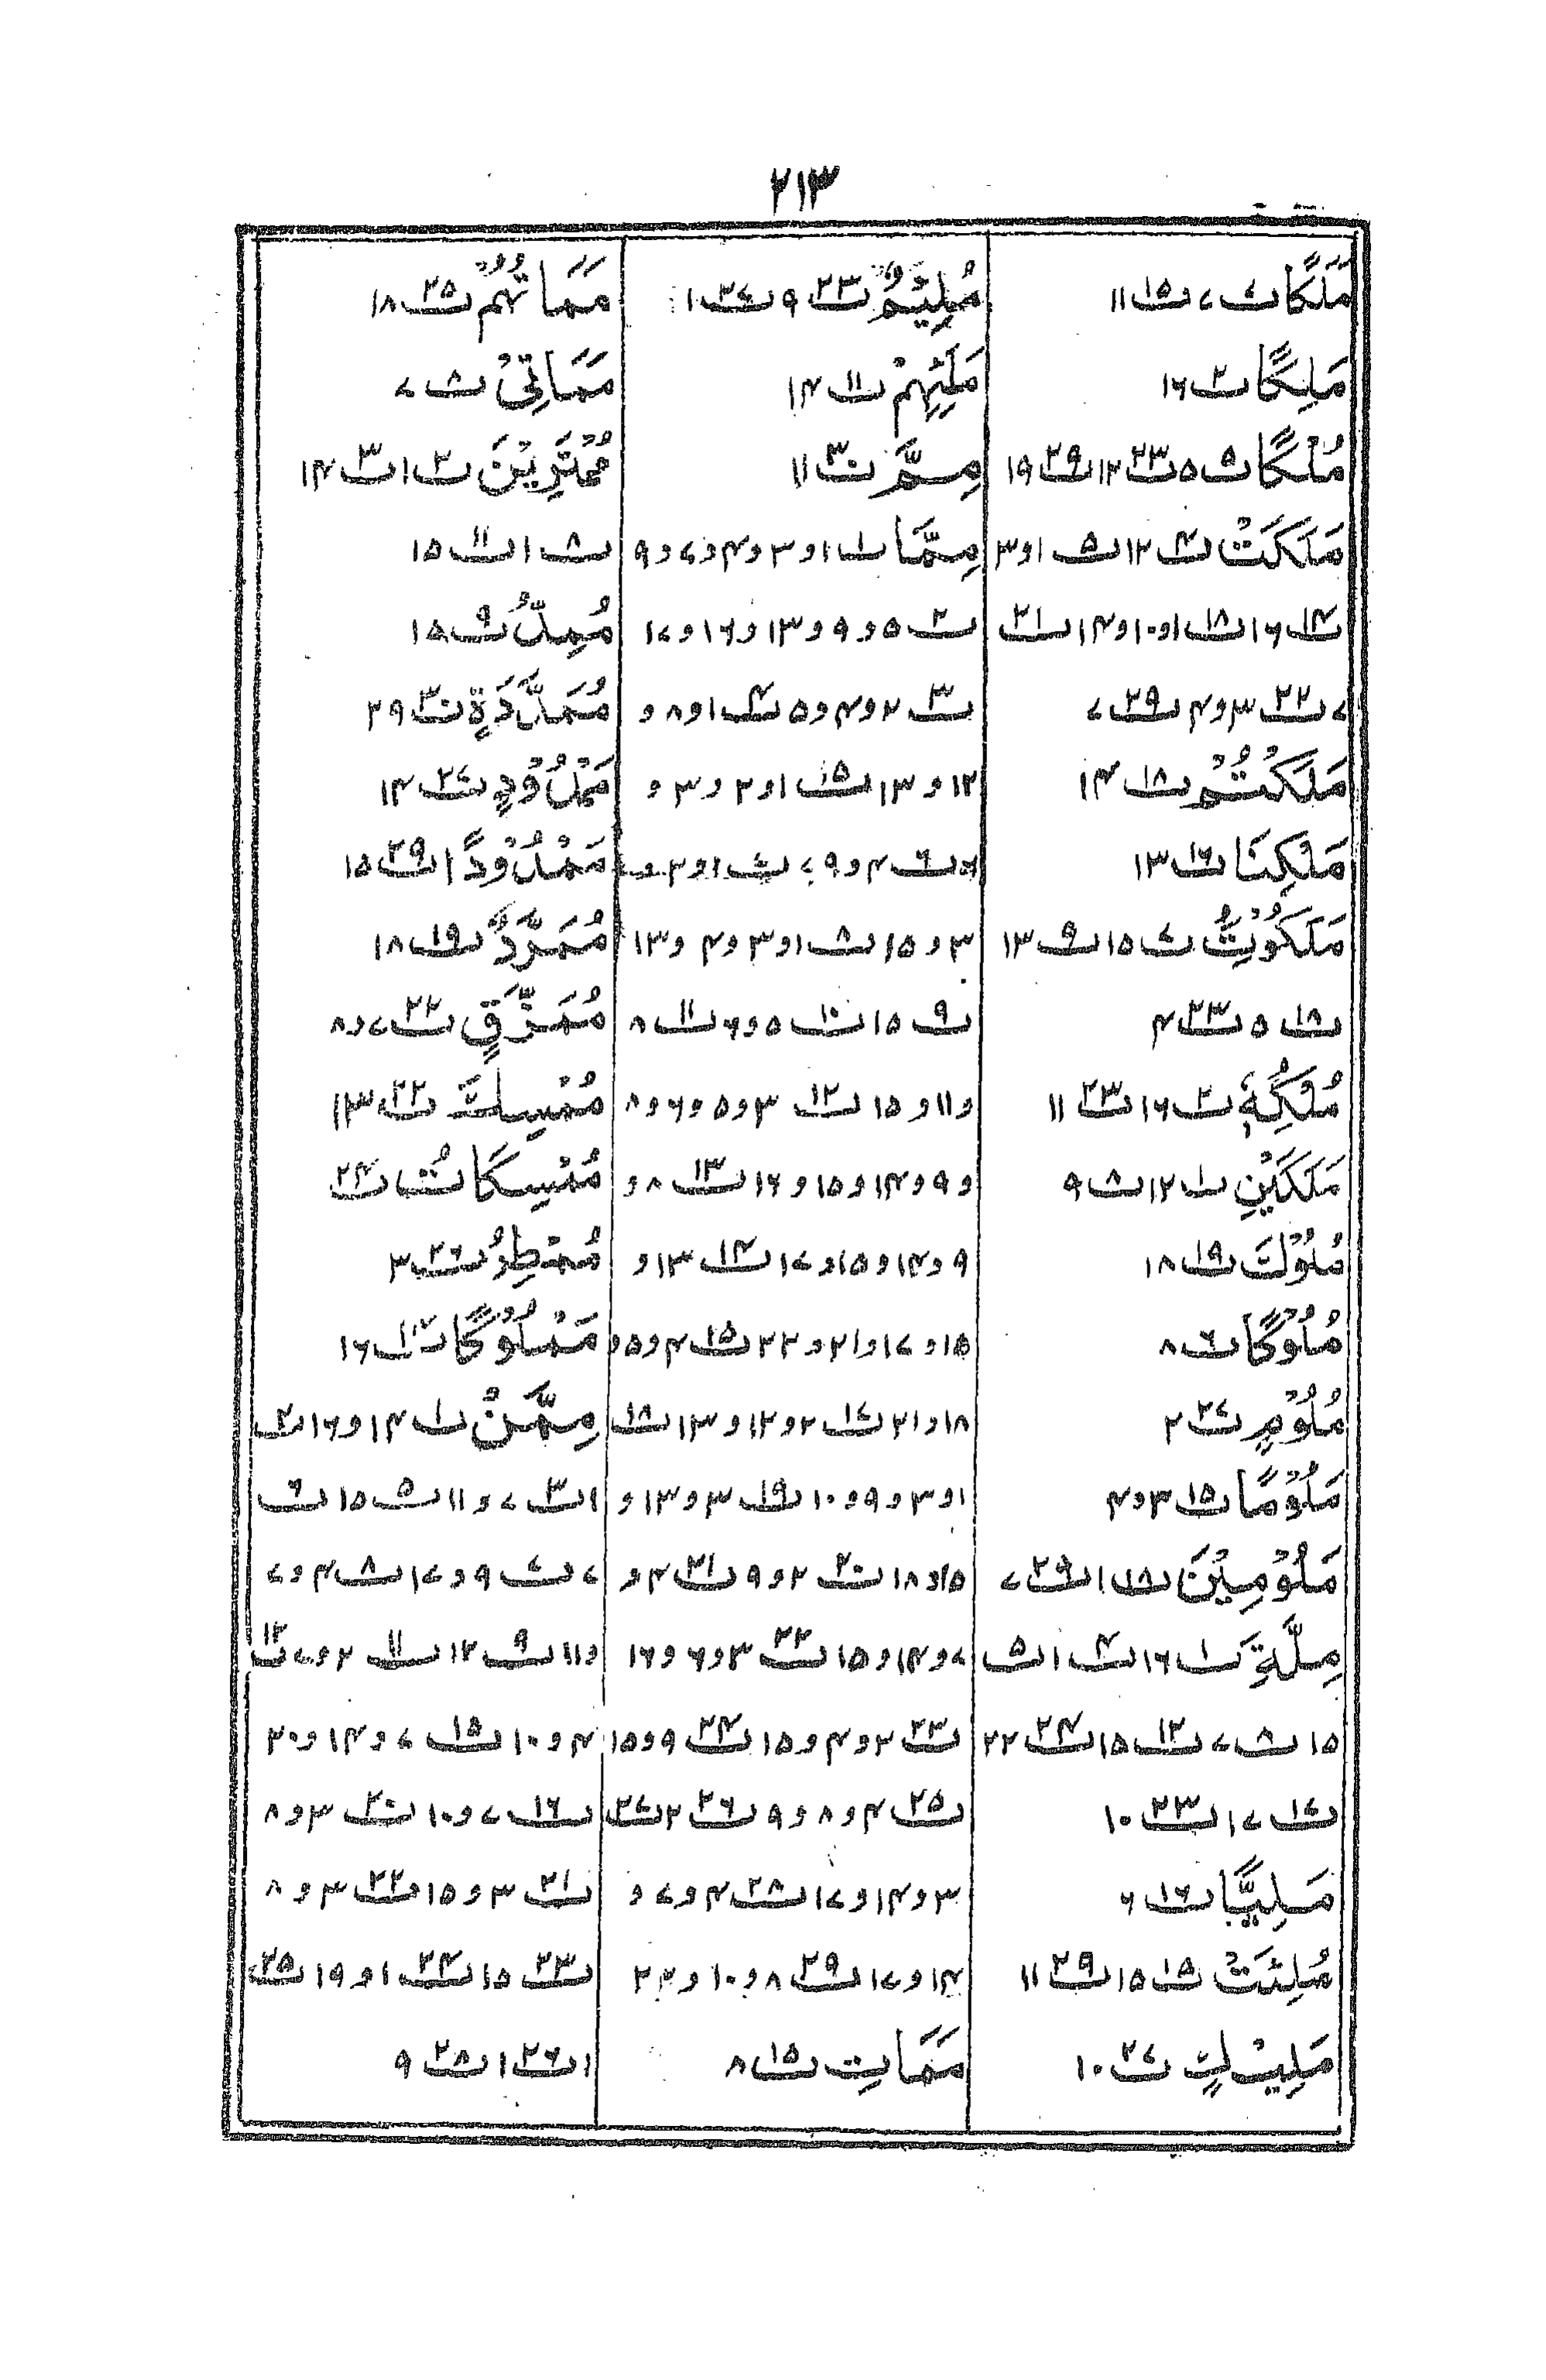 ۲۱۳
مَلَكًا ث۷ ۷ ث۱۵ ۱۱
مَلِكًا ث۲ ۱۶
مُلْكًا ث۵ ۵ ث۲۳ ۱۲ ث۲۹ ۱۹
مَلَكَتْ ث۴ ۱۲ ث۵ ۱و۳
ث۱۴ ۱۶ ث۱۸ ۱و۱۰و۱۴ ث۲۱
۷ ث۲۲ ۳و۴ ث۲۹ ۷
مَلَكْتُمْ ث۱۸ ۱۴
مَلْكِنَا ث۱۶ ۱۳
مَلَكُوتُ ث۷ ۱۵ ث۹ ۱۳
ث۱۸ ۵ ث۲۳ ۴
مُلْكِهٖ ث۲ ۱۶ ث۲۳ ۱۱
مَلَكَيْنِ ث۱ ۱۲ ث۸ ۹
مُلُوْكَ ث۱۹ ۱۸
مُلُوْكًا ث۶ ۸
مَلُوْمٍ ث۲۷ ۲
مَلُوْمًا ث۱۵ ۳و۴
مَلُوْمِيْنَ ث۱۸ ۱ ث۲۹ ۷
مِلَّةِ ث۱ ۱۶ ث۴ ۱ ث۵
۱۵ ث۸ ۷ ث۱۲ ۱۵ ث۲۴ ۲۲
ث۱۷ ۱۷ ث۲۳ ۱۰
مَلِيًّا ث۱۶ ۶
مُلِئَتْ ث۱۵ ۱۵ ث۲۹ ۱۱
مَلِيْكٍ ث۲۷ ۱۰
مُلِيْمٌ ث۲۳ ۹ ث۲۷ ۱
مَلَئِهِمْ ث۱۱ ۱۴
مِمَّ ث۳۰ ۱۱
مِمَّا ث۱ ۱و۳و۴و۷و۹
ث۲ ۵و۹و۱۳و۱۶و۱۷
ث۳ ۲و۴و۵ ث۴ ۱و۸و
۱۲و۱۳ ث۱۵ ۱و۲و۳و
ث۶ ۴و۹ ث۷ ۱و۲و
۳و۱۵ ث۸ ۱و۳و۴و۱۳
ث۹ ۱۵ ث۱۰ ۵و۶ ث۱۱ ۸
و۱۱و۱۵ ث۱۲ ۳و۵و۶و۸
و۹و۱۴و۱۵و۱۶ ث۱۳ ۸و
۹و۱۴و۱۵و۱۷ ث۱۴ ۱۳و
۱۵و۱۷و۲۱و۲۲ ث۱۵ ۴و۵و
۱۸و۲۱ ث۱۷ ۲و۱۲و۱۳ ث۱۸
۱و۳و۹و۱۰ ث۱۹ ۳و۱۳و
۱۵و۱۸ ث۲۰ ۲و۹ ث۲۱ ۴و
۷و۱۴و۱۵ ث۲۲ ۳و۶و۱۶
ث۲۳ ۲و۴و۱۵ ث۲۴ ۹و۱۵
ث۲۵ ۴و۸و۹ ث۲۶ ۲ ث۲۷
۳و۱۴و۱۷ ث۲۸ ۴و۷و
۱۴و۱۷ ث۲۹ ۸و۱۰و۲۲
مَمَاتِ ث۱۵ ۸
مَمَاتُهُمْ ث۲۵ ۱۸
مَمَاتِيْ ث۸ ۷
مُمْتَرِيْنَ ث۲ ۱ ث۳ ۱۴
ث۸ ۱ ث۱۱ ۱۵
مُمِدُّ ث۹ ۱۵
مُمَدَّدَةٍ ث۳۰ ۲۹
مَمْدُوْدٍ ث۲۷ ۱۴
مَمْدُوْدًا ث۲۹ ۱۵
مُمَرَّدٌ ث۱۹ ۱۸
مُمَزَّقٍ ث۲۲ ۷و۸
مُمْسِكَ ث۲۲ ۱۳
مُمْسِكَاتُ ث۲۴
مُمْطِرُ ث۲۶ ۳
مَمْلُوْكًا ث۱۴ ۱۶
مِمَّنْ ث۱ ۱۴و۱۶ ث۲
۱ ث۳ ۷و۱۱ ث۵ ۱۵ ث۶
۷ ث۷ ۹و۱۷ ث۸ ۴و۷
و۱۱ ث۹ ۱۲ ث۱۱ ۲و۷ ث۱۲
۴و۱۰ ث۱۵ ۷و۱۴و۲۰
ث۱۶ ۷و۱۰ ث۲۰ ۳و۸
ث۲۱ ۳و۱۵ ث۲۲ ۳و۸
ث۲۳ ۱۵ ث۲۴ ۱و۱۹ ث۲۵
۱ ث۲۶ ۱ ث۲۸ ۹